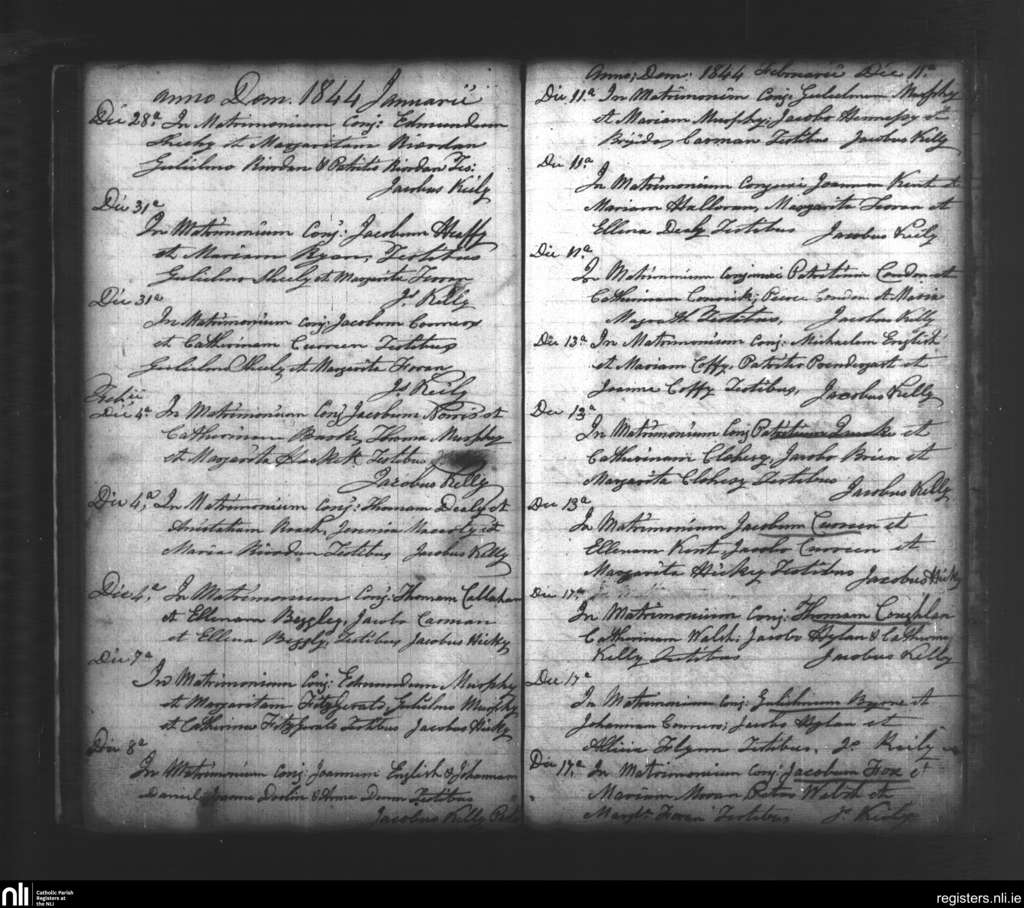 Anno Dom. 1844 Januarii
Die 28.a In Matrimonium Conj: Edmundum
Sheehy et Margaritam Riordan
Gulielmo Riordan & Patritio Riordan Tes:
Jacobus Kelly
Die 31a
In Matrimonium Conj: Jacobum
et Mariam Ryan, Testibus
Gulielmo Sheehy et Margarita Foran
Js Kelly
Die 31a
In Matrimonium Conj: Jacobum Connors
et Catherinam Curreen Testibus
Gulielmo Sheehy et Margarita Foran
Js Kelly
Febii
Die 4a In Matrimonium Conj Jacobum Norris et
Catherinam Burke, Thoma Murphy
et Margarita Hackett Testibus
Jacobus Kelly
Die 4,a In Matrimonium Conj: Thomam Dealy et
Roach, Jeremia et
Maria Riordan Testibus, Jacobus Kelly
Die 4.a In Matrimonium Conj: Thomam Callahan
et Ellenam Beggley, Jacobo Cannan
et Ellena Beggly, Testibus Jacobus Hicky
Die 7a
In Matrimonium Conj: Edmundum Murphy
et Margaritam Fitzgerald, Gulielmo Murphy
et Catherina Fitzgerald Testibus Jacobus Hicky
Die 8a
In Matrimonium Conj Joannem English & Johannam
Daniel Joanne & Anna Testibus
Jacobus Kelly
Anno, Dom: 1844 Februarii Die 11.a
Die 11.a In Matrimonium Conj: Gulielmum Murphy
et Mariam Murphy; Jacobo Hennessy et
Brigida Cannan Testibus Jacobus Kelly
Die 11.a
In Matrimonium Conjunxi Joannem Kent et
Mariam Halloran, Margarita Foran et
Ellena Dealy Testibus Jacobus Kelly
Die 11.a
In Matrimonium Conjunxi Patritium Condon et
Catherinam; Pierce Condon et Maria
Testibus, Jacobus Kelly
Die 13.a In Matrimonium Conj: Michaelem English
et Mariam Coffy, Patritio Prendergast et
Joanna Coffy Testibus, Jacobus Kelly
Die 13a
In Matrimonium Conj Patritium et
Catherinam Clohesy, Jacobo Brien et
Margarita Clohesy Testibus Jacobus Kelly
Die 13a
In Matrimonium Jacobum Curreen et
Ellenam Kent, Jacobo Curreen et
Margarita Hickey Testibus Jacobus Hicky
Die 17.a
In Matrimonium Conj: Thomam Coughlan
Catherinam Walsh; Jacobo Hylan & Catherina
Kelly Testibus Jacobus Kelly
Die 17a
In Matrimonium Conj: Gulielmum Byrne et
Johannam Curreen; Jacobo Hylan et
Allicia Flynn Testibus, Js Keily
Die 17,a In Matrimonium Conj Jacobum Fox et
Mariam Moran Petro Welsh et
Margta Foran Testibus Js Keily
nli
Catholic Parish
Registers at
the NLI
registers.nli.ie